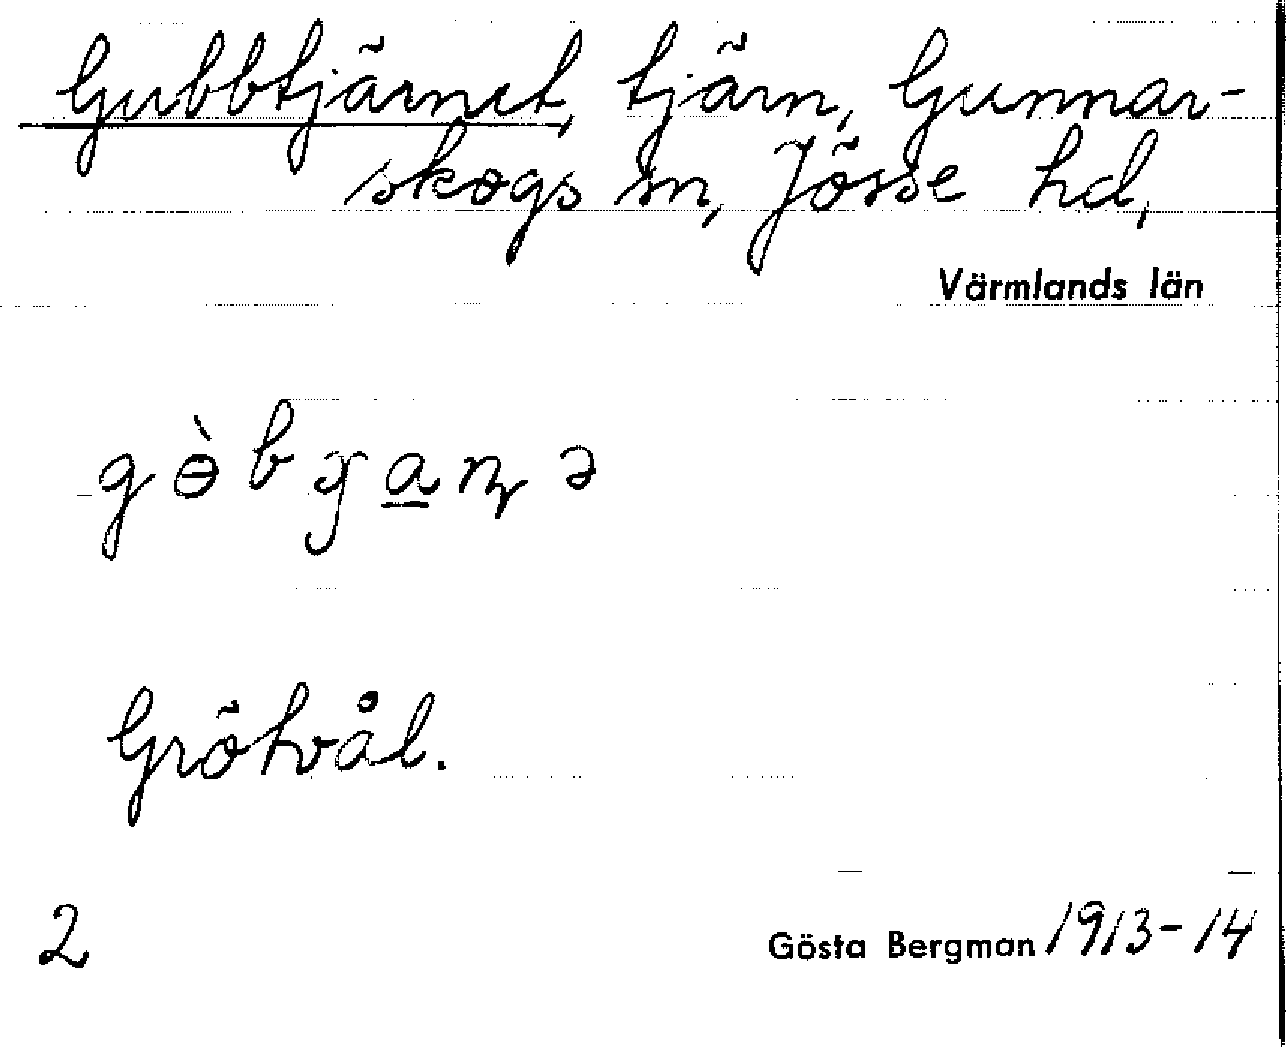 Gubbtjärnet, tjärn, Gunnar-
skogs sn, Jösse hd,
Värmlands län
gɵ̀bɟa̲ɳə
Grötvål.
2
Gösta Bergman 1913-14